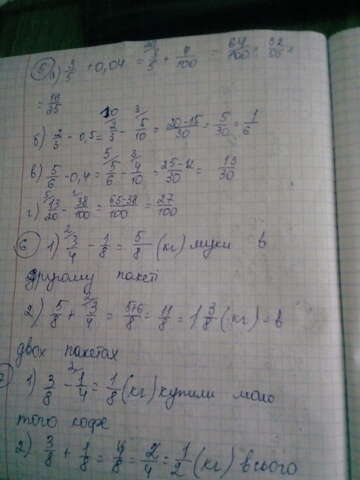 5) а) 3/5 + 0,04 = 3/5 + 4/100 = 64/100 = 32/50 =
= 16/25
б) 2/3 - 0,5 = 2/3 - 5/10 = 20-15/30 = 5/30 = 1/6
в) 5/6 - 0,4 = 5/6 - 4/10 = 25-12/30 = 13/30
г) 13/20 - 38/100 = 65-38/100 = 27/100
6) 1) 3/4 - 1/8 = 5/8 (кг) муки в
другому пакеті
2) 5/8 + 3/4 = 5+6/8 = 11/8 = 1 3/8 (кг) - в
двох пакетах
1) 3/8 - 1/4 = 1/8 (кг) купили моло
того кофе
2) 3/8 + 1/8 = 4/8 = 2/4 = 1/2 (кг) всього